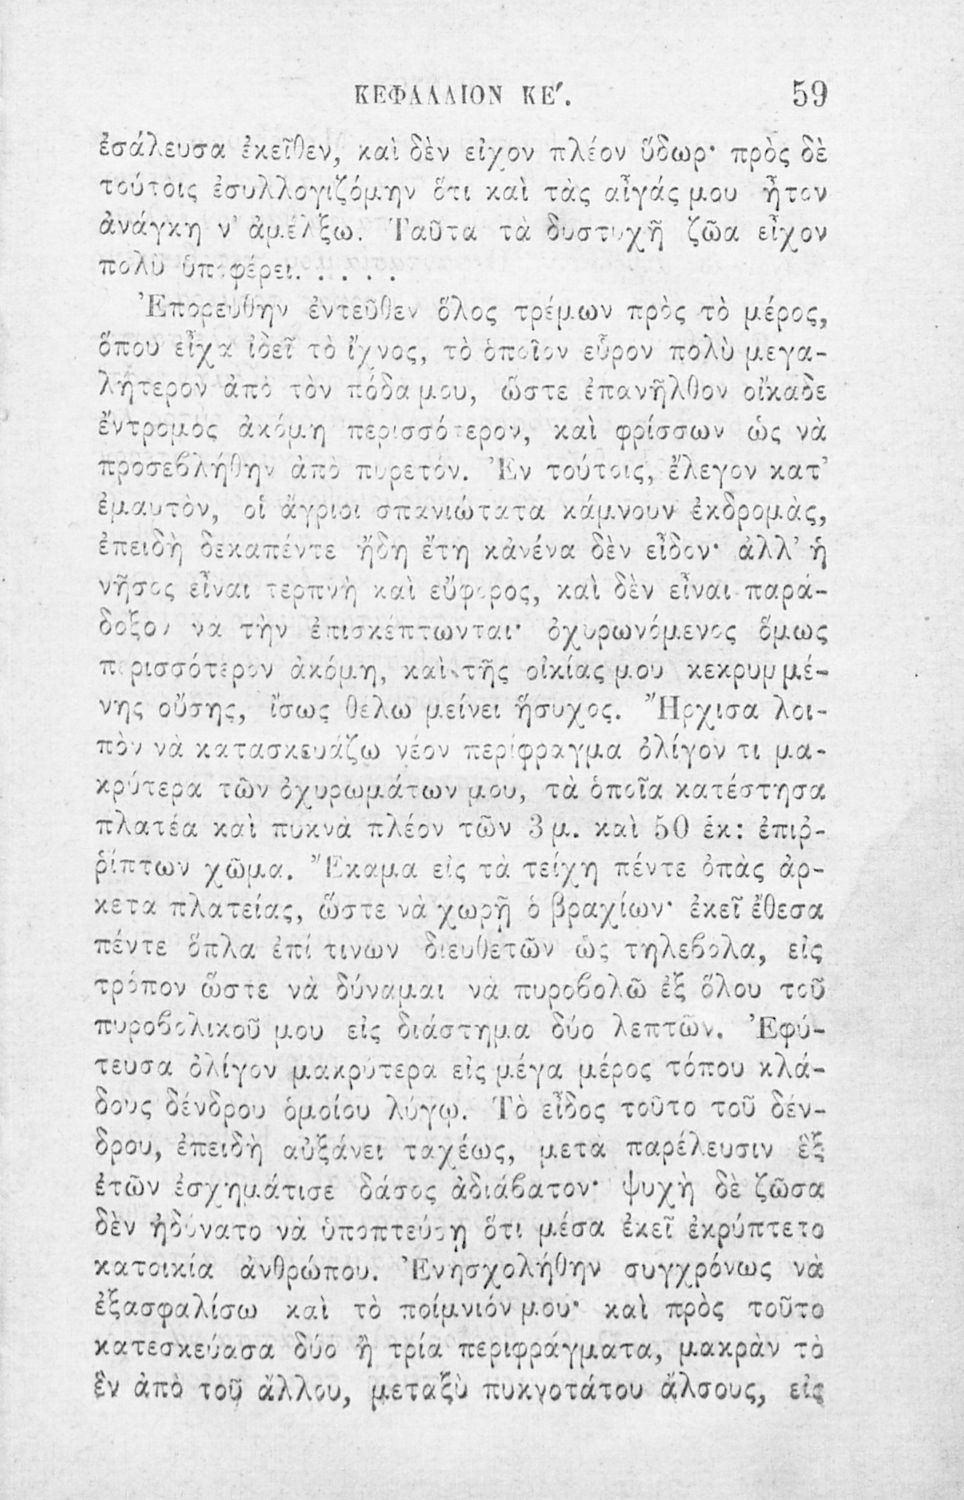 ΚΕΦΑΛΑΙΟΝ ΚΕʹ. 59
ἐσάλευσα ἐκεῖθεν, καὶ δὲν εἶχον πλέον ὕδωρ· πρὸς δὲ
τούτοις ἐσυλλογιζόμην ὅτι καὶ τὰς αἶγάς μου ἦτον
ἀνάγκη ν' ἀμέλξω. Ταῦτα τὰ δυστυχῆ ζῶα εἶχον
πολὺ ὑποφέρει. . . . .
Ἐπορεύθην ἐντεῦθεν ὅλος τρέμων πρὸς τὸ μέρος,
ὅπου εἶχα ἰδεῖ τὸ ἴχνος, τὸ ὁποῖον εὗρον πολὺ μεγα-
λήτερον ἀπὸ τὸν πόδα μου, ὥστε ἐπανῆλθον οἴκαδε
ἔντρομος ἀκόμη περισσότερον, καὶ φρίσσων ὡς νὰ
προσεβλήθην ἀπὸ πυρετόν. Ἐν τούτοις, ἔλεγον κατ'
ἐμαυτὸν, οἱ ἄγριοι σπανιώτατα κάμνουν ἐκδρομὰς,
ἐπειδὴ δεκαπέντε ἤδη ἔτη κἀνένα δὲν εἶδον· ἀλλ' ἡ
νῆσος εἶναι τερπνὴ καὶ εὔφορος, καὶ δὲν εἶναι παρά-
δοξον νὰ τὴν ἐπισκέπτωνται· ὀχυρωνόμενος ὅμως
περισσότερον ἀκόμη, καὶ τῆς οἰκίας μου κεκρυμμέ-
νης οὔσης, ἴσως θέλω μείνει ἥσυχος. Ἤρχισα λοι-
πὸν νὰ κατασκευάζω νέον περίφραγμα ὀλίγον τι μα-
κρύτερα τῶν ὀχυρωμάτων μου, τὰ ὁποῖα κατέστησα
πλατέα καὶ πυκνὰ πλέον τῶν 3 μ. καὶ 50 ἑκ: ἐπιῤ-
ῥίπτων χῶμα. Ἔκαμα εἰς τὰ τείχη πέντε ὀπὰς ἀρ-
κετὰ πλατείας, ὥστε νὰ χωρῇ ὁ βραχίων· ἐκεῖ ἔθεσα
πέντε ὅπλα ἐπί τινων διευθετῶν ὡς τηλεβόλα, εἰς
τρόπον ὥστε νὰ δύναμαι νὰ πυροβολῶ ἐξ ὅλου τοῦ
πυροβολικοῦ μου εἰς διάστημα δύο λεπτῶν. Ἐφύ-
τευσα ὀλίγον μακρύτερα εἰς μέγα μέρος τόπου κλά-
δους δένδρου ὁμοίου λύγῳ. Τὸ εἶδος τοῦτο τοῦ δέν-
δρου, ἐπειδὴ αὐξάνει ταχέως, μετὰ παρέλευσιν ἓξ
ἐτῶν ἐσχημάτισε δάσος ἀδιάβατον· ψυχὴ δὲ ζῶσα
δὲν ἠδύνατο νὰ ὑποπτεύσῃ ὅτι μέσα ἐκεῖ ἐκρύπτετο
κατοικία ἀνθρώπου. Ἐνησχολήθην συγχρόνως νὰ
ἐξασφαλίσω καὶ τὸ ποίμνιόν μου· καὶ πρὸς τοῦτο
κατεσκεύασα δύο ἢ τρία περιφράγματα, μακρὰν τὸ
ἓν ἀπὸ τοῦ ἄλλου, μεταξὺ πυκνοτάτου ἄλσους, εἰς